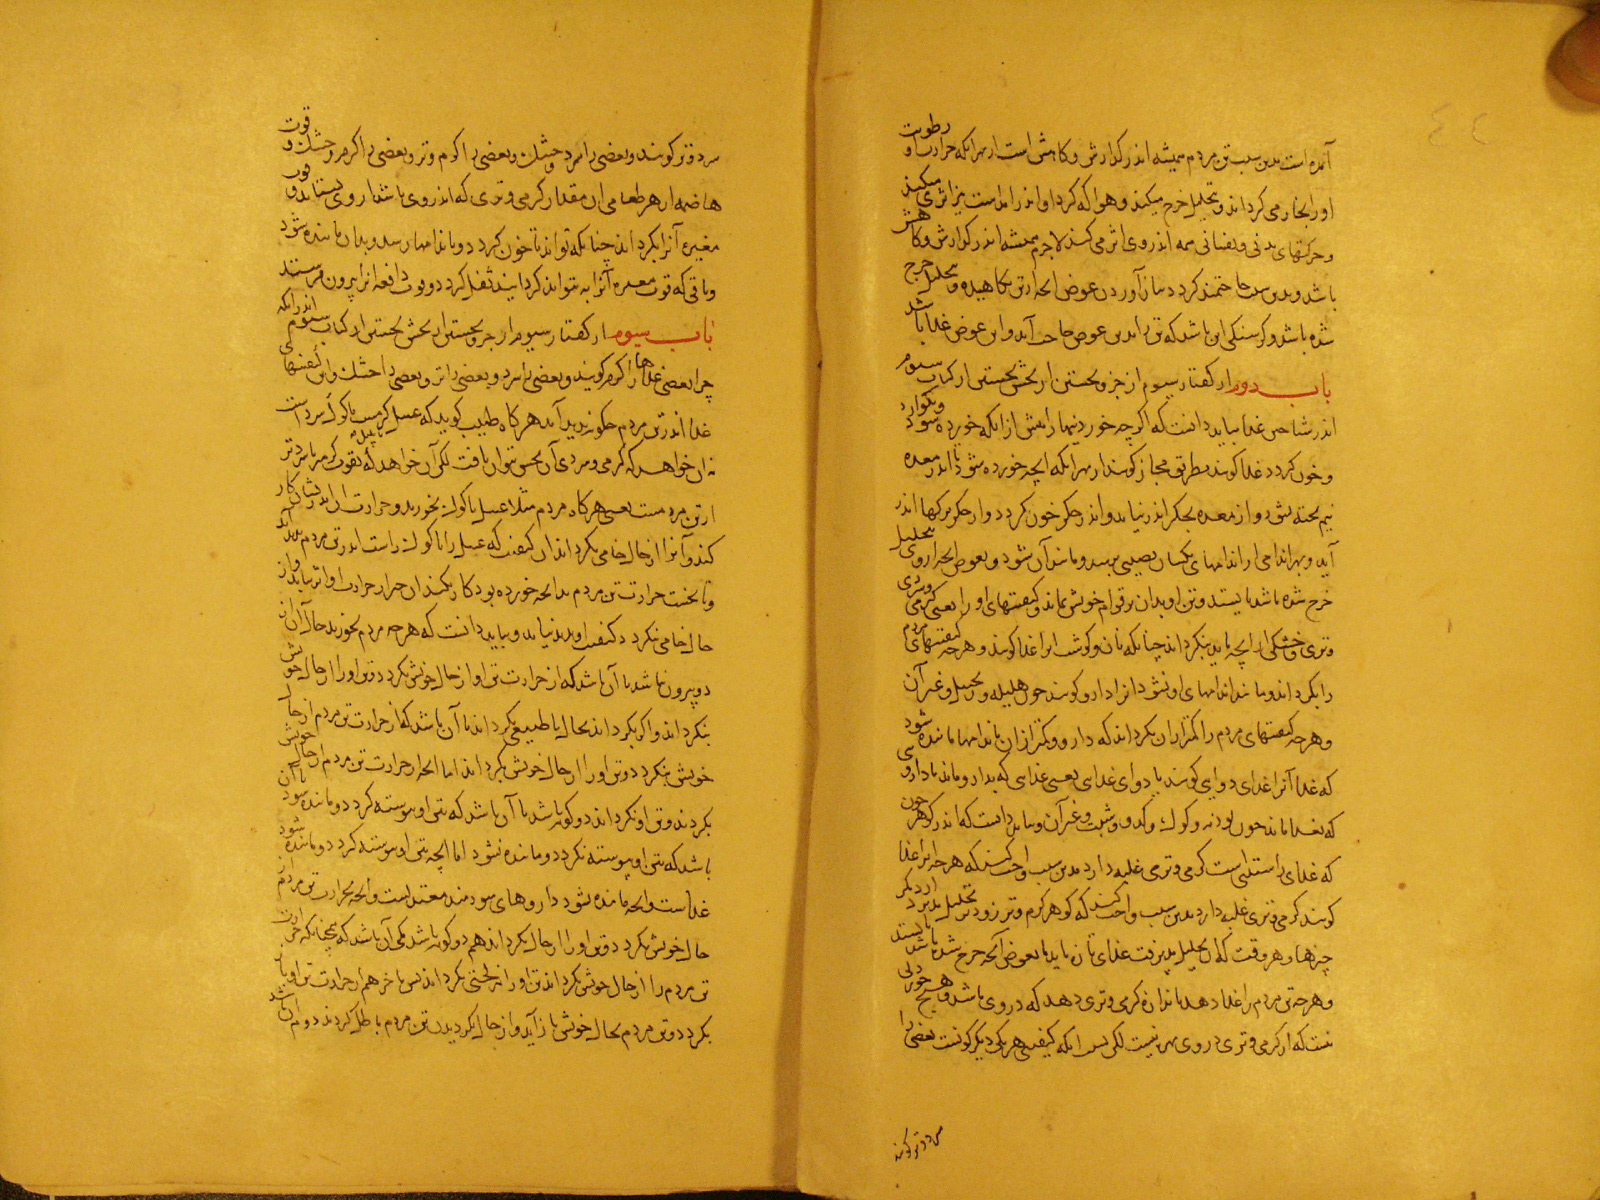 آمده است بدین سبب تن مردم همیشه اندر گدازش و کاهش است از بهر آنکه حرارت او رطوبت
او را بخار می گرداند و بتحلیل خرج میکند و هوا که گرد او اندر آمدست نیز اثری میکند
و حرکتهای بدنی و نفسانی همه اندر وی اثر می کند لاجرم همیشه اندر گدازش و کاهش
باشد و بدین سبب حاجتمند گردد بباز آوردن عوض آنچه از تن کاهیده و بتحلیل خرج
شده باشد و گرسنگی این باشد که تن را بدین عوض حاجت آید و این عوض غذا باشد
باب دوم از گفتار سیوم از جزو نخستین از بخش نخستین از کتاب سیوم
اندر شناختن غذا بباید دانست که اگرچه خوردنیها را پیش از آنکه خورده شود و بگوارد
و خون گردد غذا گویند بطریق مجاز گویند از بهر آنکه آنچه خورده شود تا اندر معده
نیم پخته نشود و از معده بجگر اندر نیاید و اندر جگر خون نگردد و از جگر برگها اندر
آید و بهر اندامی از اندامهای یکسان نصیبی برسد و مانند آن شود و بعوض آنچه از وی بتحلیل
خرج شده باشد بایستد و تن او بدان بر قوام خویش بماند و کیفیتهای او را یعنی گرمی و سردی
و تری و خشکی از آنچه باید بنگرداند چنانکه نان و گوشت این را غذا گویند و هرچه کیفیتهای مردم
را بگرداند و مانند اندامهای او نشود آنرا دارو گویند چون هلیله و زنجبیل و غیر آن
و هرچه کیفیتهای مردم را کمتر از آن بگرداند که دارو و کمتر از آن باندامها ماننده شود
که غذا آنرا غذای دوایی گویند یا دوای غذایی یعنی غذایی که بدارو ماند یا دارویی
که بغذا ماند چون پودنه و کوک و کدو و شبت و غیر آن و بباید دانست که اندر گوهر خون
که غذای راستینی است گرمی و تری غلبه دارد بدین سبب واجب کند که هرچه این را غذا
گویند گرمی و تری غلبه دارد بدین سبب واجب کند که گوهر گرم و تر زودتر تحلیل پذیرد از دیگر
چیزها و هر وقت که آن تحلیل پذیرفت غذای تازه باید تا بعوض آنچه خرج شده باشد بایستد
و هرچه تن مردم را غذا دهد باندازه گرمی و تری دهد که در وی باشد و هیچ خوردنی
نیست که از گرمی و تری در وی بهره نیست لکن بسبب آنکه کیفیتی هر یکی دیگرگونست بعضی را
سرد و تر گویند
سرد و تر گویند و بعضی را سرد و خشک و بعضی را گرم و تر و بعضی را گرم و خشک و قوت
هاضمه از هر طعامی آن مقدار گرمی و تری که اندر وی باشد از وی بستاند و قوت
مغیره آنرا بگرداند چنانکه تواند تا خون گردد و باندامها رسد و بدان ماننده شود
و باقی که قوت معده آنرا به نتواند گردانید ثفل گردد و قوت دافعه آنرا بیرون فرستد
باب سیوم از گفتار سیوم از جزو نخستین از بخش نخستین از کتاب سیوم اندر آنکه
چرا بعضی غذاها را گرم گویند و بعضی را سرد و بعضی را تر و بعضی را خشک و این کیفیتهای
غذا اندر تن مردم چگونه پدید آید هرگاه طبیب گوید که عسل گرمست یا کوک سرد است
نه آن خواهد که گرمی و سردی آن بحس بتوان یافت لکن آن خواهد که بقوت گرمتر یا سردتر
از تن مردمست یعنی هرگاه مردم مثلا عسل یا کوک بخورند و حرارت ایشان اندر آن کار
کند و آنرا از حال خامی بگرداند آن کیفیت که عسل را یا کوک راست اندر تن مردم پدید آید
و تا نخست حرارت تن مردم بدانچه خورده بود کار نکند آن چیز از حرارت او اثر نیابد و از
حال خامی نگردد کیفیت او پدید نیاید و بباید دانست که هرچه مردم بخورند حال آن از
دو بیرون نباشد یا آن باشد که از حرارت تن او از حال خویش بگردد و تن او را از حال خویش
بنگرداند و اگر بگرداند بحال ناطبیعی نگرداند یا آن باشد که از حرارت تن مردم از حال
خویش بنگردد و تن او را از حال خویش بگرداند اما آنچه از حرارت تن مردم از حال خویش
بگردد و تن او نگرداند دو گونه باشد یا آن باشد که بتن او پیوسته گردد و ماننده شود یا آن
باشد که بتن او پیوسته نگردد و ماننده نشود اما آنچه بتن او پیوسته گردد و ماننده شود
غذاست و آنچه ماننده نشود داروهای سودمند معتدلست و آنچه از حرارت تن مردم از
حال خویش بگردد و تن او را از حال بگرداند هم دو گونه باشد یکی آن باشد که همچنانکه حرارت
تن مردم را از حال خویش بگرداند تن او را نیز لختی بگرداند پس باخر هم از حرارت تن او باز
بگردد و تن مردم بحال خویش باز آید و از حال گردیدن تن مردم باطل گردد دوم آن باشد